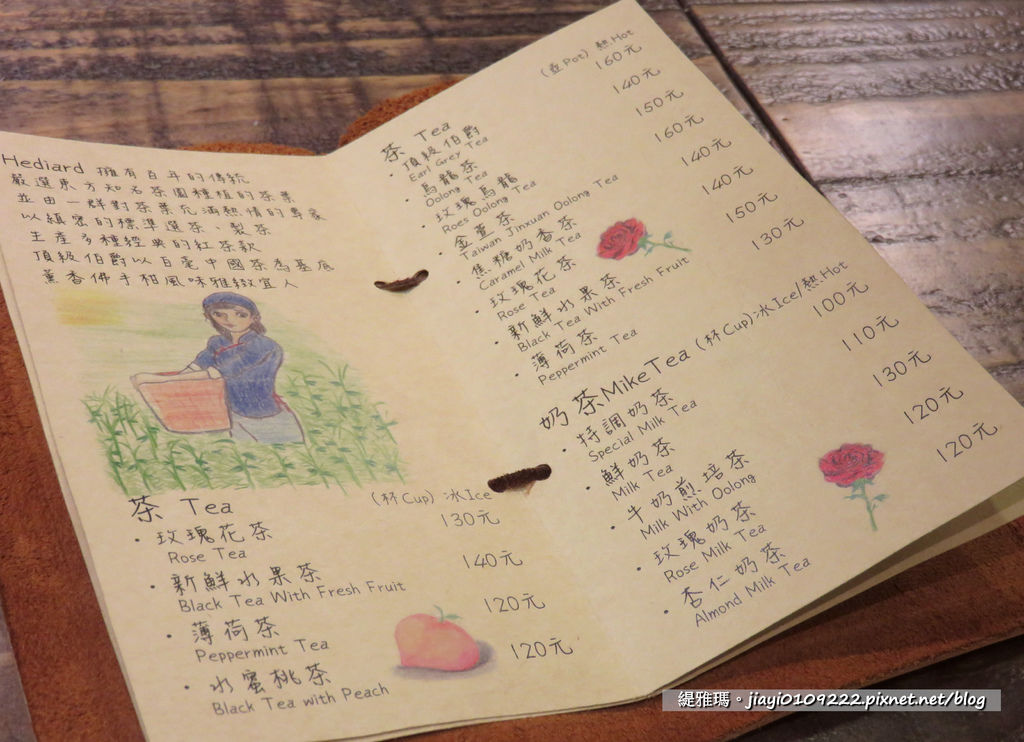 Hediard 擁有百年的傳統
嚴選東方知名茶園種植的茶葉
並由一群對茶葉充滿熱情的專家
以縝密的標準選茶、製茶
生產多種經典的紅茶款
頂級伯爵以白毫中國茶為基底
薰香佛手柑風味雅緻宜人
茶 Tea (杯Cup) 冰Ice
·玫瑰花茶 130元
Rose Tea
·新鮮水果茶 140元
Black Tea With Fresh Fruit
·薄荷茶 120元
Peppermint Tea
·水蜜桃茶 120元
Black Tea with Peach
茶 Tea (壺Pot) 熱Hot
·頂級伯爵 160元
Earl Grey Tea
·烏龍茶 140元
Oolong Tea
·玫瑰烏龍 150元
Roes Oolong Tea
·金萱茶 160元
Taiwan Jinxuan Oolong Tea
·焦糖奶香茶 140元
Caramel Milk Tea
·玫瑰花茶 140元
Rose Tea
·新鮮水果茶 150元
Black Tea With Fresh Fruit
·薄荷茶 130元
Peppermint Tea
奶茶MikeTea (杯Cup)冰Ice/熱Hot
·特調奶茶 100元
Special Milk Tea
·鮮奶茶 110元
Milk Tea
·牛奶煎培茶 130元
Milk With Oolong
·玫瑰奶茶 120元
Rose Milk Tea
·杏仁奶茶 120元
Almond Milk Tea
緹雅瑪。jiayi0109222.pixnet.net/blog